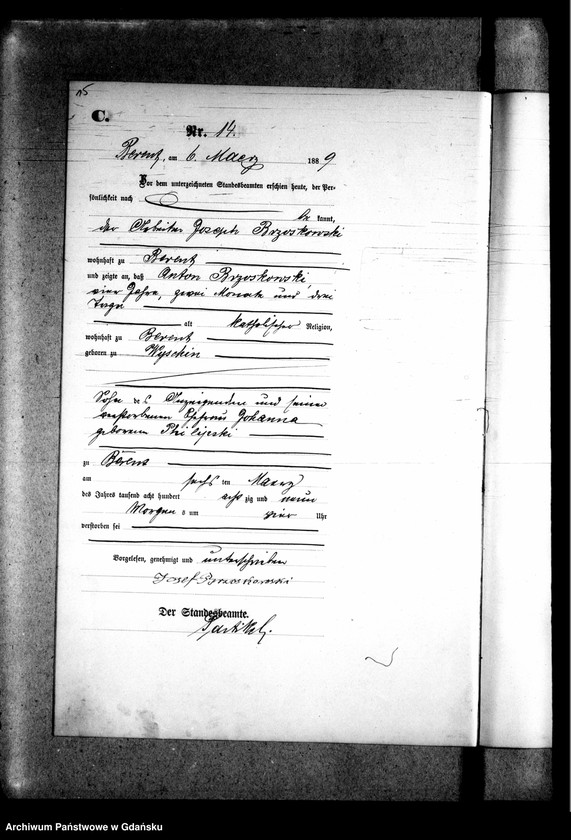 15
C.
Nr. 14.
Berent, am 6. Maerz 1889
Vor dem unterzeichneten Standesbeamten erschien heute, der Per-
sönlichkeit nach
be kannt,
der Arbeiter Joseph Brzoskowski
wohnhaft zu Berent
und zeigte an, daß Anton Brzoskowski,
vier Jahre, zwei Monate und drei
Tage
alt katholischer Religion,
wohnhaft zu Berent
geboren zu Wyschin
Sohn des Anzeigenden und seiner
verstorbenen Ehefrau Johanna
geborenen
zu Berent
am sechs ten Maerz
des Jahres tausend acht hundert acht zig und neun
Morgen s um vier Uhr
verstorben sei
Vorgelesen, genehmigt und unterschrieben
Josef Brzoskowski
Der Standesbeamte.
Archiwum Państwowe w Gdańsku